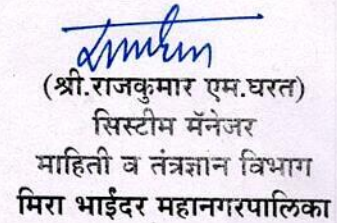 (श्री.राजकुमार एम.घरत)
सिस्टीम मॅनेजर
माहिती व तंत्रज्ञान विभाग
मिरा भाईंदर महानगरपालिका